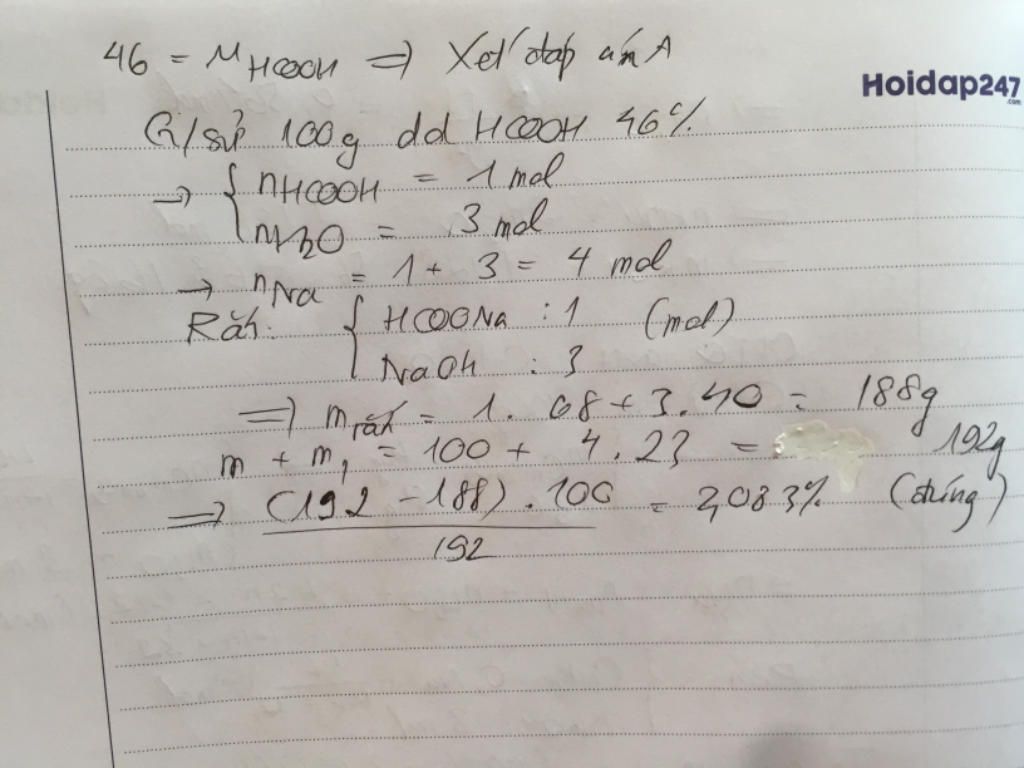 46 = M HCOOH => Xét đáp án A
Hoidap247
.com
G/sử 100g dd HCOOH 46%
→ { nHCOOH = 1 mol
nH2O = 3 mol
→ nNa = 1 + 3 = 4 mol
Rắn: { HCOONa : 1 (mol)
NaOH : 3
=> m rắn = 1. 68 + 3.40 = 188g
m + m1 = 100 + 4.23 = 192g
=> (192 - 188) . 100 = 2,083% (đúng)
192